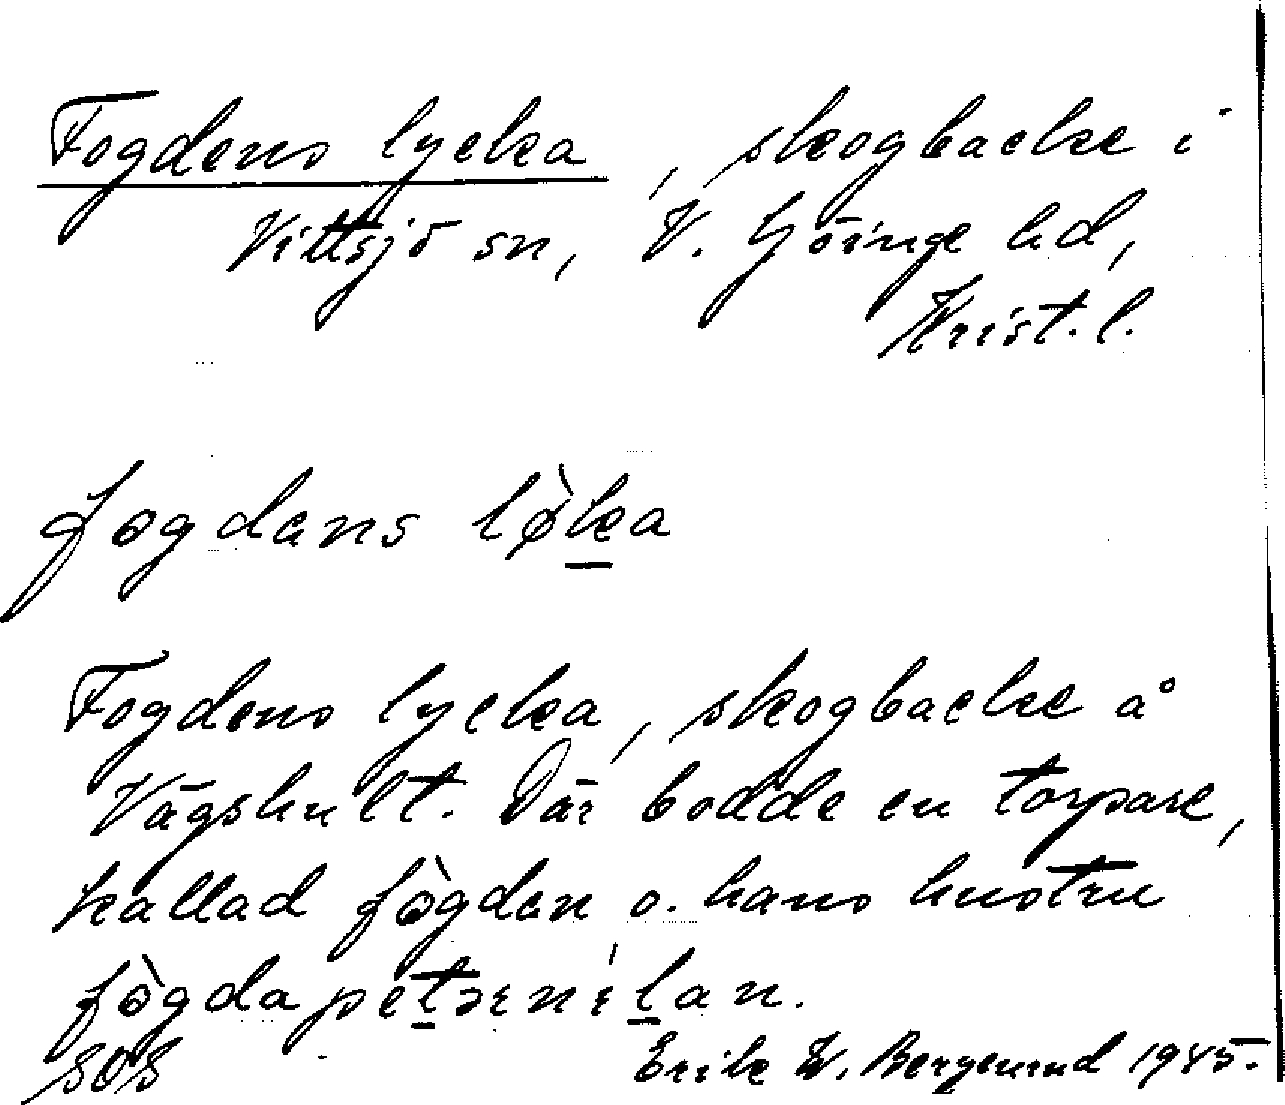 Fogdens lycka, skogbacke i
Vittsjö sn, V. Göinge hd,
Krist. l.
fogdans lø̀ka
Fogdens lycka, skogbacke å
Vägshult. Där bodde en torpare,
kallad fògdan o. hans hustru
fògdapetärnílan.
SOS Erik W. Berglund 1945.